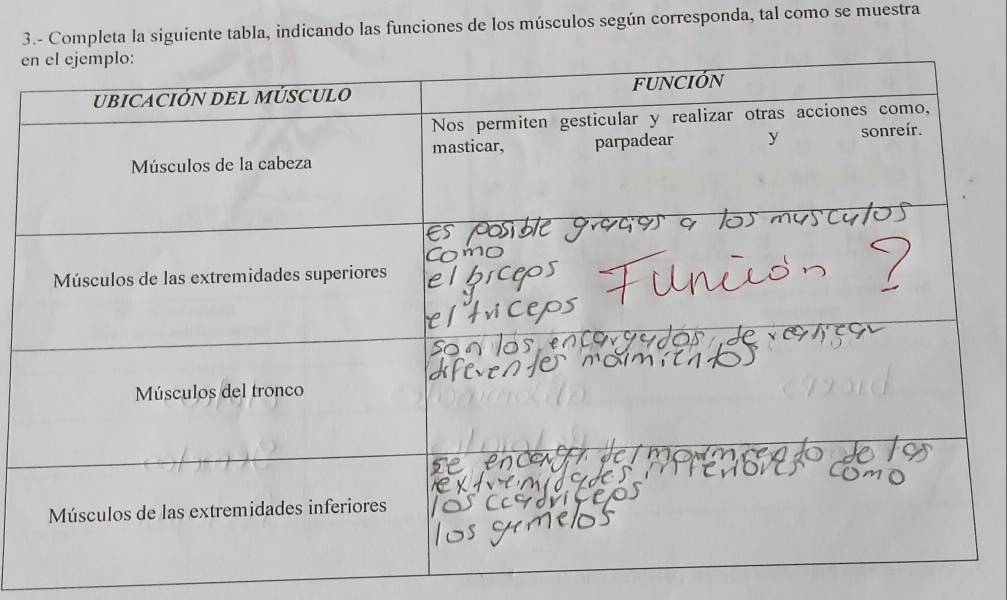 3.- Completa la siguiente tabla, indicando las funciones de los músculos según corresponda, tal como se muestra
en el ejemplo:
UBICACIÓN DEL MÚSCULO
FUNCIÓN
Músculos de la cabeza
Nos permiten gesticular y realizar otras acciones como,
masticar, parpadear y sonreír.
Músculos de las extremidades superiores
es posible gracias a los musculos
como
el biceps
y
el triceps
Función ?
Músculos del tronco
son los encargados de realizar
diferentes moimientos
Músculos de las extremidades inferiores
se del de las
extremidades inferiores como
los
los gemelos